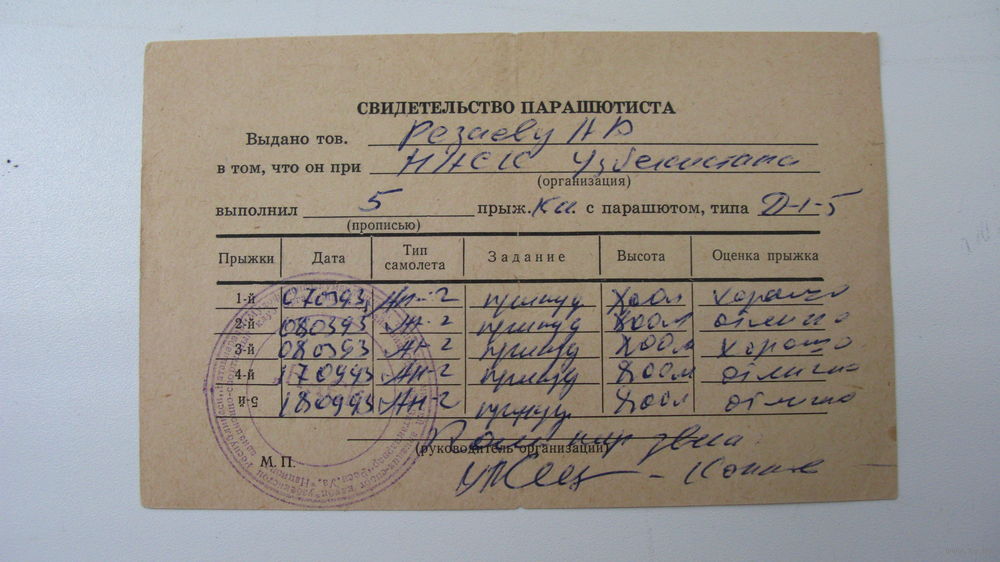 СВИДЕТЕЛЬСТВО ПАРАШЮТИСТА
Выдано тов. Резаеву А Р
в том, что он при НАСК Узбекистана
(организация)
выполнил 5 прыж.ки с парашютом, типа Д-1-5
(прописью)
Прыжки Дата Тип самолета Задание Высота Оценка прыжка
1-й 070393 Ан-2 принуд 800м хорошо
2-й 080393 Ан-2 принуд 800м отлично
3-й 080393 Ан-2 принуд 800м хорошо
4-й 170993 Ан-2 принуд 800м отлично
5-й 180993 Ан-2 принуд 800м отлично
(руководитель организации)
М. П.